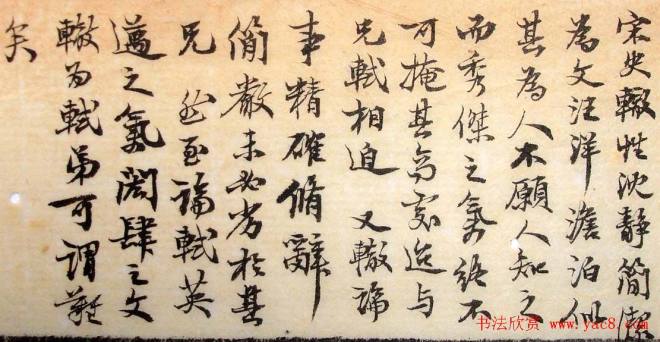 宋史辙性沈静简潔
為文汪洋澹泊似
其為人不願人知之
而秀傑之氣終不
可掩其高處迨与
兄軾相迫 又辙論
事精確脩辭
简嚴未必劣於其
兄 然至論軾英
邁之氣闳肆之文
辙为軾弟可謂難
矣
书法欣赏 www.yac8.com